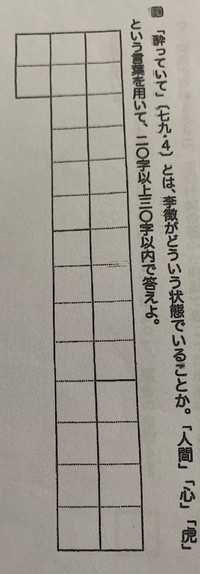 「酔っていて」(七九・4)とは、李徴がどういう状態でいることか。「人間」「心」「虎」
という言葉を用いて、二〇字以上三〇字以内で答えよ。